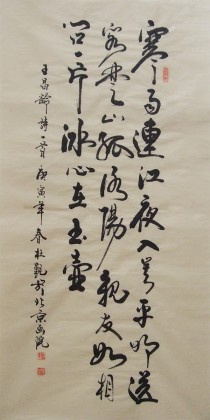 寒雨連江夜入吳平明送
客楚山孤洛陽親友如相
問一片冰心在玉壺
王昌齡詩一首庚寅年春杜於北京画院